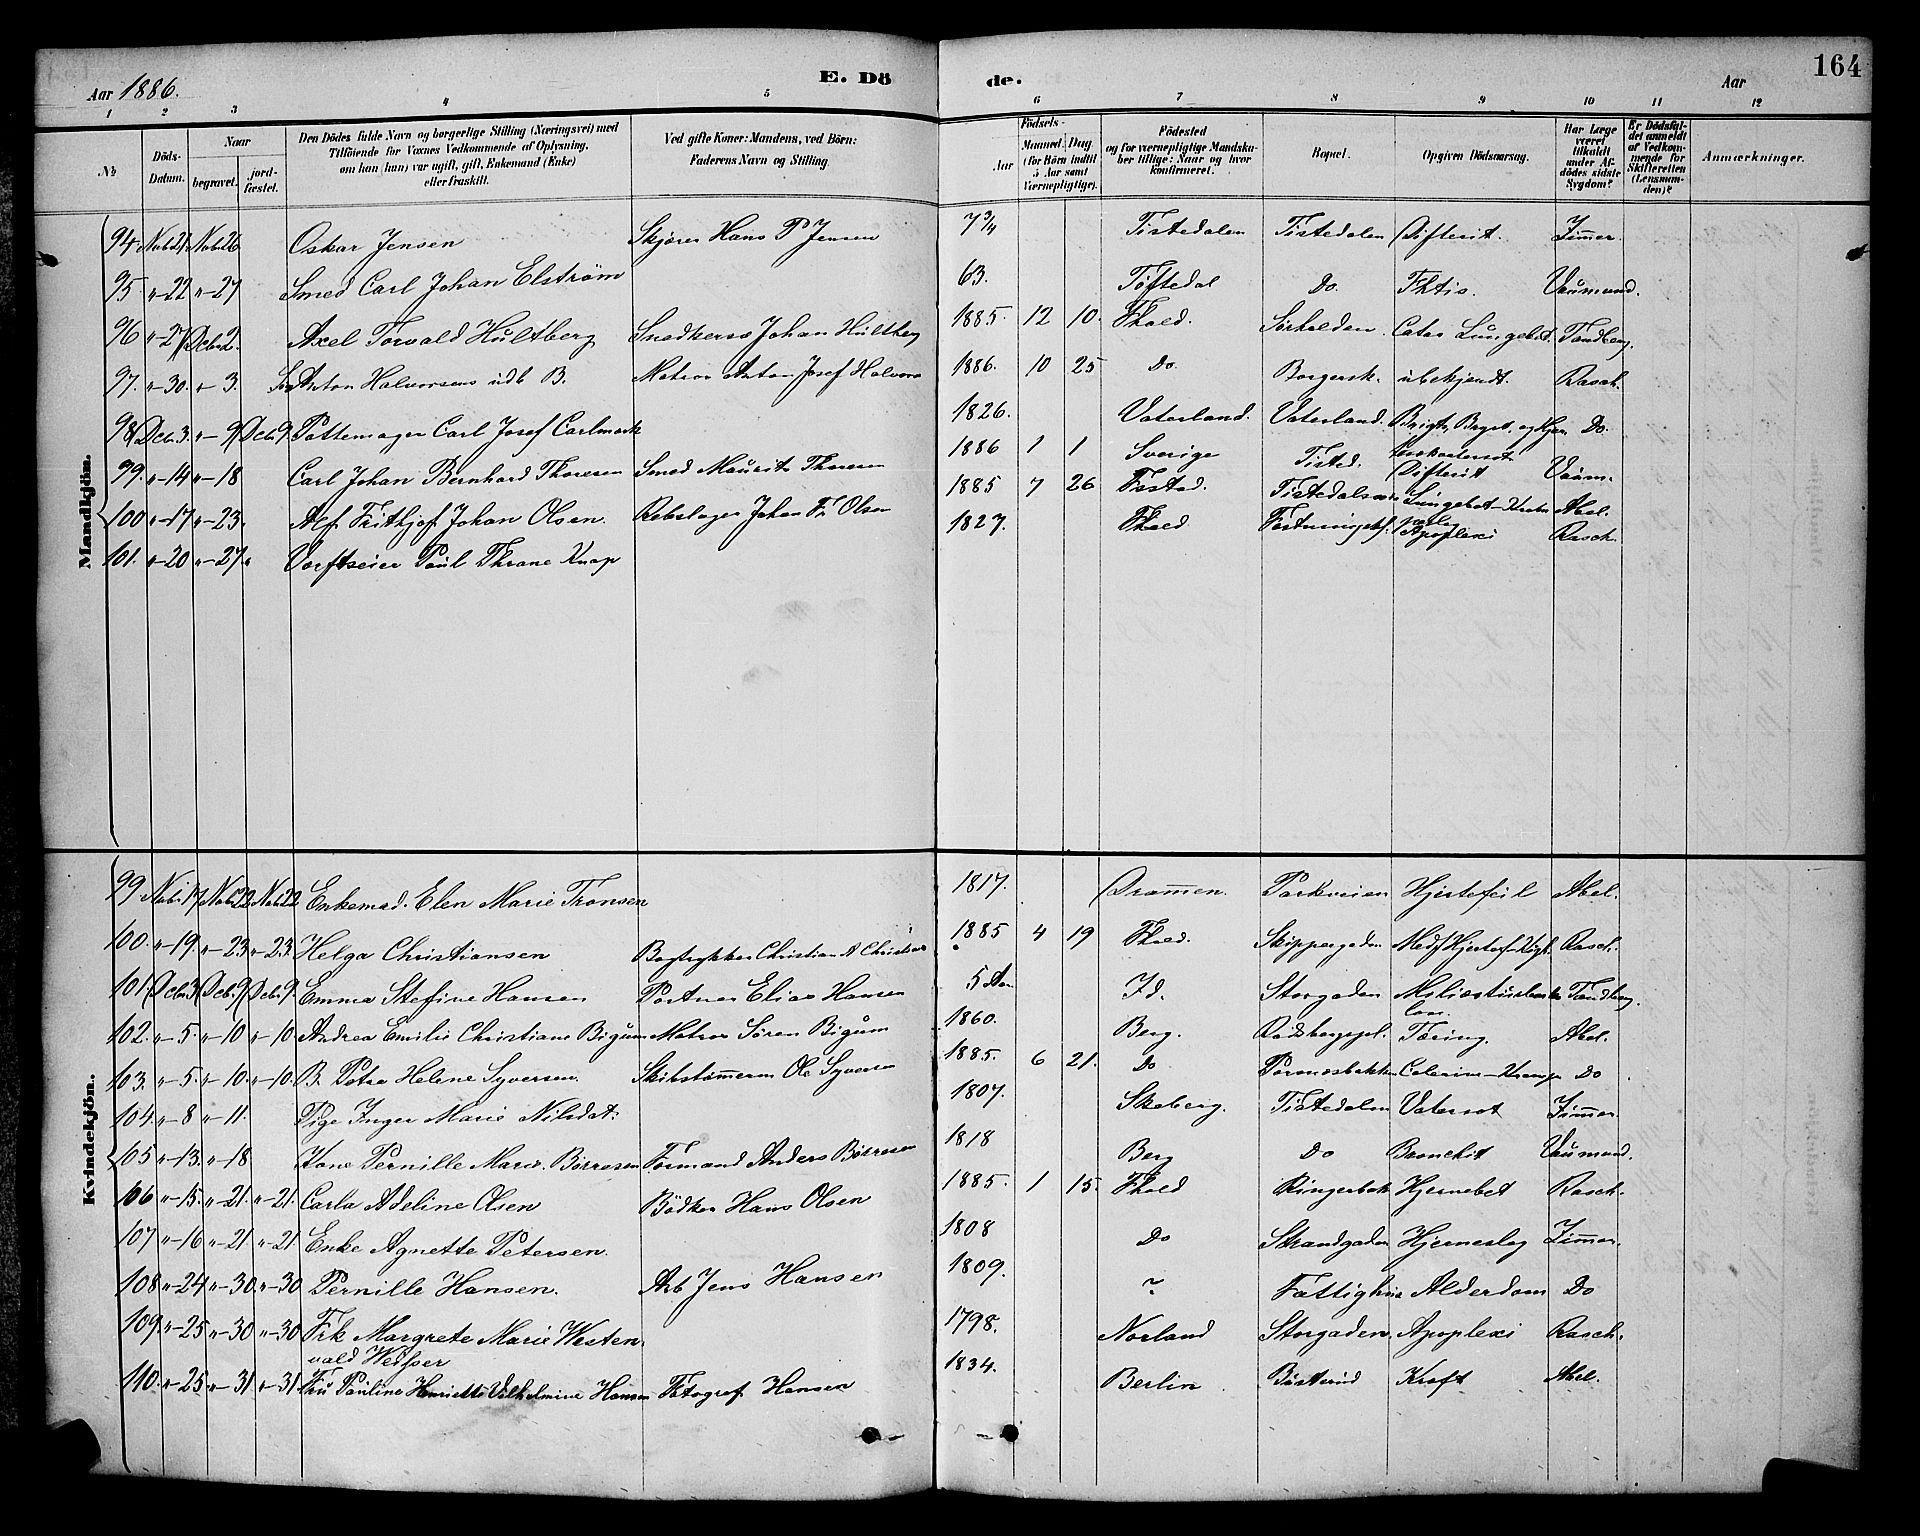 164
Aar 1886.
E. Dö
de.
Aar
1 2 3 4 5 6 7 8 9 10 11 12
No
Döds-Datum.
Naar
begravet.
jord-fæstet.
Den Dödes fulde Navn og borgerlige Stilling (Næringsvei) med
Tilföiende for Voxnes Vedkommende af Oplysning,
om han (hun) var ugift, gift, Enkemand (Enke)
eller fraskilt.
Ved gifte Koner: Mandens, ved Börn:
Faderens Navn og Stilling.
Födsels-
Aar
Maaned, Dag
(for Börn indtil
5 Aar samt
Værnepligtige).
Födested
og for værnepligtige Mandska-
ber tillige: Naar og hvor
konfirmeret.
Bopæl.
Opgiven Dödsaarsag.
Har Læge
været
tilkaldt
under Af-
dödes sidste
Sygdom?
Er Dödsfal-
det anmeldt
af Vedkom-
mende for
Skifteretten
(Lensman-
den)?
Anmærkninger.
Mandkjön.
94. Nvb 21 Nvb 26 Oskar Jensen Skjører Hans P Jensen 7 3/4 Tistedalen Tistedalen Difterit. Zimmer.
95. "-22 "-27 Smed Carl Johan Elström 63. Töftedal Do. Ftis. Vaumund.
96 "-27 Dcbr 2. Axel Torvald Hultberg Snedkersv Johan Hultberg 1885. 12 10. Fhald. Sörhalden. Catar Lungebet. Tandberg.
97. "-30. "-3. Anton Halvorsens udb B. Matros Anton Josef Halvors 1886. 10 25 Do. Borgersk. ubekjendt. Rasch.
98 Dcb. 3. "-9 Dcb. 9 Pottemager Carl Josef Carlmark 1826. Vaterland. Vaterland. Brigts Bryst. og Hjer Do.
99. "-14 "-18 Carl Johan Bernhard Thoresen Smed Maurits Thoresen 1886 1 1 Sverige Tisted. Difterit Vaum.
100 "-17 "-23. Alf Frithjof Johan Olsen. Rebslager Johan Fr Olsen 1885 7 26 Tistedalen Lungebet-Kram Abel.
101. "-20 "-27 " Værftseier Paul Thrane Knap 1827. Fhald Apoplexi Rasch.
Kvindekjön.
99 Nvb. 17 Nvb 22 Nvb 22 Enkemad. Elen Marie Tronsen 1817. Drammen. Parkveien Hjertefeil Abel.
100. "-19. "-23 "-23. Helga Christiansen Bogtrykker Christian A Christians 1885 4 19 Fhald. Skippergaden Rasch.
101. Dcbr 3 Dcb. 9 Dcbr. 9 Emma Stefine Hansen Portner Elias Hansen 5 Aar Id. Storgaden Tandberg.
102. "-5. "-10 "-10. Andrea Emilie Christiane Bigum Matros Sören Bigum 1860. Berg. Rödsbergspl. Tæring. Abel.
103. "-5. "-10. "-10. B. Petra Helene Syversen. Skibstömerm Ole Syversen 1885. 6 21. Do Do
104. "-8 "-11. Pige Inger Marie Nilsdat. 1807. Skeberg. Tistedalen Vatersot Zimmer.
105 "-13. "-18 Kone Pernille Marie Börresen Formand Anders Börresen 1818 Berg Do Bronchit Vaumund.
106 "-15. "-21. "-21. Carla Adeline Olsen Bödker Hans Olsen 1885. 1 15. Fhald Ringerbak Hjernebet Rasch.
107 "-16 "-21 "-21 Enke Agnette Petersen. 1808 Do Strandgaden Hjerneslag Zimmer.
108 "-24 "-30. "-30 Pernille Hansen. Arb Jens Hansen 1809. ? Fattighus Alderdom Do
109. "-25 "-30 "-30 Frk Margrete Marie Westen 1798. Norland Storgaden. Apoplexi Rasch.
vald
110. "-25 "-31 "-31 Fru Pauline Henriette Vilhelmine Hansen Fotograf Hansen 1834. Berlin Kræft Abel.